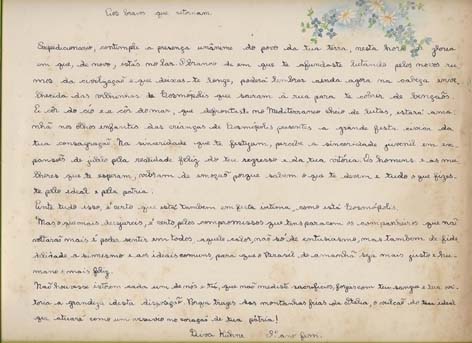 Aos bravos que retornam.
Expedicionario, contemple a presença unânime do povo da tua terra, nesta hora de gloria
em que, de novo, estás no lar. P branco de em que te afundaste lutando pelos novos ru-
mos da civilização e que deixas-te longe, poderá lembrar ainda agora na cabeça enve-
lhecida das velhinhas de Cosmópolis que saíram à rua para te cobrir de bençãos.
E a côr do céo e a côr do mar, que defrontaste no Mediterraneo cheio de lutas, estará ama-
nhã nos olhos infantis das crianças de Cosmópolis presentes a grande festa civica da
tua consagração. Na sinceridade que te festejam, perceba a sinceridade juvenil em ex-
pansões de jubilo pela realidade feliz do teu regresso e da tua vitória. Os homens e as mu-
lheres que te esperam, vibram de emoção porque sabem o que te devem e tudo o que fizes-
te pelo ideal e pela pátria.
Ante tudo isso, é certo que estás tambem em festa intima, como está Cosmópolis.
Mas o que mais desejareis, é certo, pelos compromissos que tens para com os companheiros que não
voltarão mais é poder sentir em todos, aquele calor, não só de entusiasmo, mas tambem de fide-
lidade a si mesmo e aos ideais comuns, para que o Brasil de amanhã seja mais justo e hu-
mano e mais feliz.
Não houvesse istrem cada um de nós e tú, que não mediste sacrificios, forjas com teu sangue e tua vi-
toria a grandeza desta disposição. Porque trazes das montanhas frias da Italia, o vulcão do teu ideal
que atuará como um no coração de tua pátria!
Diva Kühne 3º ano fem.